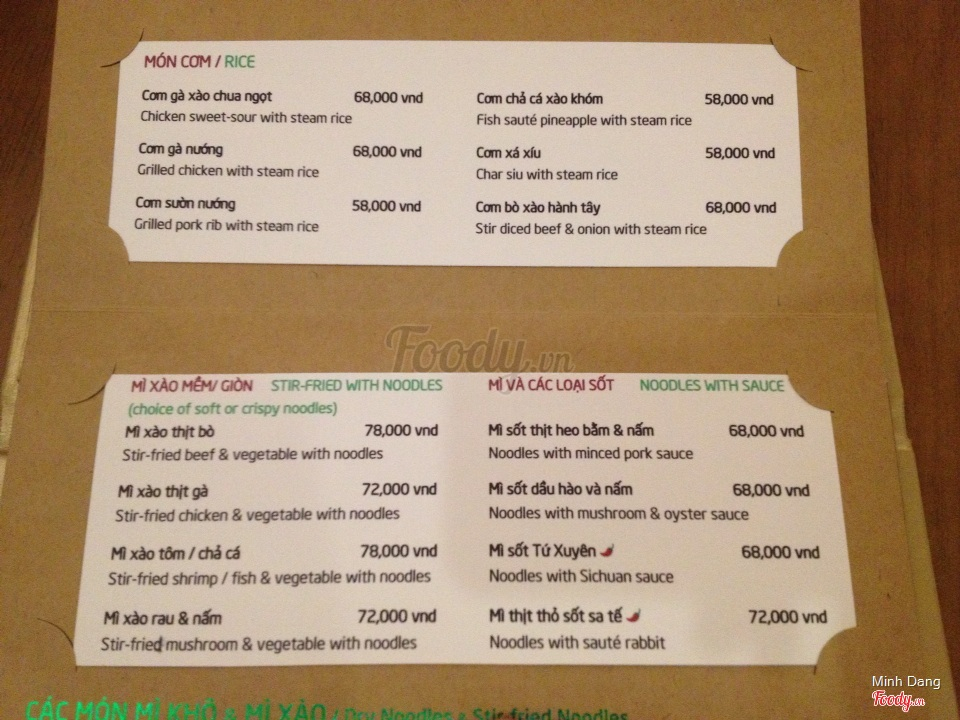 MÓN CƠM / RICE
Cơm gà xào chua ngọt 68,000 vnd
Chicken sweet-sour with steam rice
Cơm gà nướng 68,000 vnd
Grilled chicken with steam rice
Cơm sườn nướng 58,000 vnd
Grilled pork rib with steam rice
Cơm chả cá xào khóm 58,000 vnd
Fish sauté pineapple with steam rice
Cơm xá xíu 58,000 vnd
Char siu with steam rice
Cơm bò xào hành tây 68,000 vnd
Stir diced beef & onion with steam rice
Foody.vn
MÌ XÀO MỀM/ GIÒN STIR-FRIED WITH NOODLES
(choice of soft or crispy noodles)
Mì xào thịt bò 78,000 vnd
Stir-fried beef & vegetable with noodles
Mì xào thịt gà 72,000 vnd
Stir-fried chicken & vegetable with noodles
Mì xào tôm / chả cá 78,000 vnd
Stir-fried shrimp / fish & vegetable with noodles
Mì xào rau & nấm 72,000 vnd
Stir-fried mushroom & vegetable with noodles
MÌ VÀ CÁC LOẠI SỐT NOODLES WITH SAUCE
Mì sốt thịt heo bằm & nấm 68,000 vnd
Noodles with minced pork sauce
Mì sốt dầu hào và nấm 68,000 vnd
Noodles with mushroom & oyster sauce
Mì sốt Tứ Xuyên 68,000 vnd
Noodles with Sichuan sauce
Mì thịt thỏ sốt sa tế 72,000 vnd
Noodles with sauté rabbit
CÁC MÓN MÌ KHÔ & MÌ XÀO / Dry Noodles & Stir-fried Noodles
Minh Dang
Foody.vn